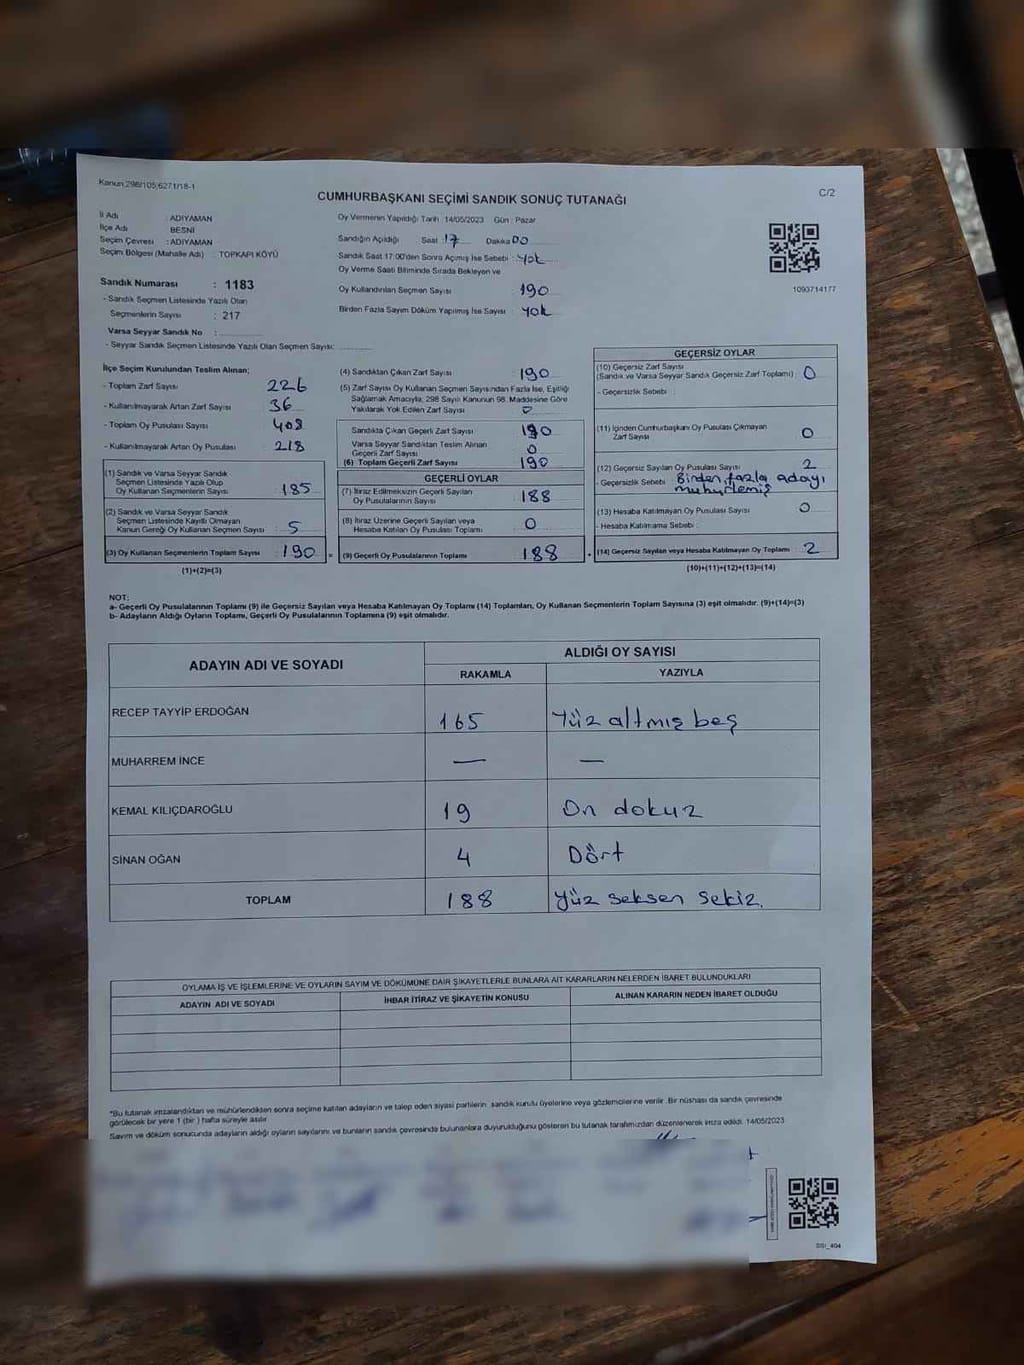 Kanun:298/105;6271/18-1
C/2
CUMHURBAŞKANI SEÇİMİ SANDIK SONUÇ TUTANAĞI
İl Adı : ADIYAMAN
İlçe Adı BESNİ
Seçim Çevresi : ADIYAMAN
Seçim Bölgesi (Mahalle Adı) : TOPKAPI KÖYÜ
Sandık Numarası : 1183
- Sandık Seçmen Listesinde Yazılı Olan
Seçmenlerin Sayısı : 217
Varsa Seyyar Sandık No :
- Seyyar Sandık Seçmen Listesinde Yazılı Olan Seçmen Sayısı:
Oy Vermenin Yapıldığı Tarih :14/05/2023 Gün : Pazar
Sandığın Açıldığı Saat 17 Dakika 00
Sandık Saat 17:00'den Sonra Açılmış İse Sebebi : Yok
Oy Verme Saati Bitiminde Sırada Bekleyen ve
Oy Kullandırılan Seçmen Sayısı 190
Birden Fazla Sayım Döküm Yapılmış İse Sayısı yok
1093714177
İlçe Seçim Kurulundan Teslim Alınan;
- Toplam Zarf Sayısı 226
- Kullanılmayarak Artan Zarf Sayısı 36
- Toplam Oy Pusulası Sayısı 408
- Kullanılmayarak Artan Oy Pusulası 218
(1) Sandık ve Varsa Seyyar Sandık
Seçmen Listesinde Yazılı Olup
Oy Kullanan Seçmenlerin Sayısı 185
(2) Sandık ve Varsa Seyyar Sandık
Seçmen Listesinde Kayıtlı Olmayan
Kanun Gereği Oy Kullanan Seçmen Sayısı 5
(3) Oy Kullanan Seçmenlerin Toplam Sayısı 190 =
(1)+(2)=(3)
(4) Sandıktan Çıkan Zarf Sayısı 190
(5) Zarf Sayısı Oy Kullanan Seçmen Sayısından Fazla İse, Eşitliği
Sağlamak Amacıyla, 298 Sayılı Kanunun 98. Maddesine Göre
Yakılarak Yok Edilen Zarf Sayısı 0
Sandıkta Çıkan Geçerli Zarf Sayısı 190
Varsa Seyyar Sandıktan Teslim Alınan
Geçerli Zarf Sayısı 0
(6) Toplam Geçerli Zarf Sayısı 190
GEÇERLİ OYLAR
(7) İtiraz Edilmeksizin Geçerli Sayılan
Oy Pusulalarının Sayısı 188
(8) İtiraz Üzerine Geçerli Sayılan veya
Hesaba Katılan Oy Pusulası Toplamı 0
(9) Geçerli Oy Pusulalarının Toplamı 188 +
GEÇERSİZ OYLAR
(10) Geçersiz Zarf Sayısı
(Sandık ve Varsa Seyyar Sandık Geçersiz Zarf Toplamı) : 0
- Geçersizlik Sebebi :
(11) İçinden Cumhurbaşkanı Oy Pusulası Çıkmayan
Zarf Sayısı 0
(12) Geçersiz Sayılan Oy Pusulası Sayısı 2
- Geçersizlik Sebebi Birden fazla adayı
muhurlemiş
(13) Hesaba Katılmayan Oy Pusulası Sayısı : 0
- Hesaba Katılmama Sebebi :
(14) Geçersiz Sayılan veya Hesaba Katılmayan Oy Toplamı 2
(10)+(11)+(12)+(13)=(14)
NOT:
a- Geçerli Oy Pusulalarının Toplamı (9) ile Geçersiz Sayılan veya Hesaba Katılmayan Oy Toplamı (14) Toplamları, Oy Kullanan Seçmenlerin Toplam Sayısına (3) eşit olmalıdır. (9)+(14)=(3)
b- Adayların Aldığı Oyların Toplamı, Geçerli Oy Pusulalarının Toplamına (9) eşit olmalıdır.
ADAYIN ADI VE SOYADI ALDIĞI OY SAYISI
RAKAMLA YAZIYLA
RECEP TAYYİP ERDOĞAN 165 Yüz altmış beş
MUHARREM İNCE — —
KEMAL KILIÇDAROĞLU 19 On dokuz
SİNAN OĞAN 4 Dört
TOPLAM 188 Yüz seksen sekiz.
OYLAMA İŞ VE İŞLEMLERİNE VE OYLARIN SAYIM VE DÖKÜMÜNE DAİR ŞİKAYETLERLE BUNLARA AİT KARARLARIN NELERDEN İBARET BULUNDUKLARI
ADAYIN ADI VE SOYADI İHBAR İTİRAZ VE ŞİKAYETİN KONUSU ALINAN KARARIN NEDEN İBARET OLDUĞU
*Bu tutanak imzalandıktan ve mühürlendikten sonra seçime katılan adayların ve talep eden siyasi partilerin sandık kurulu üyelerine veya gözlemcilerine verilir. Bir nüshası da sandık çevresinde
görülecek bir yere 1 (bir) hafta süreyle asılır
Sayım ve döküm sonucunda adayların aldığı oyların sayılarını ve bunların sandık çevresinde bulunanlara duyurulduğunu gösteren bu tutanak tarafımızdan düzenlenerek imza edildi. 14/05/2023
SSI_404